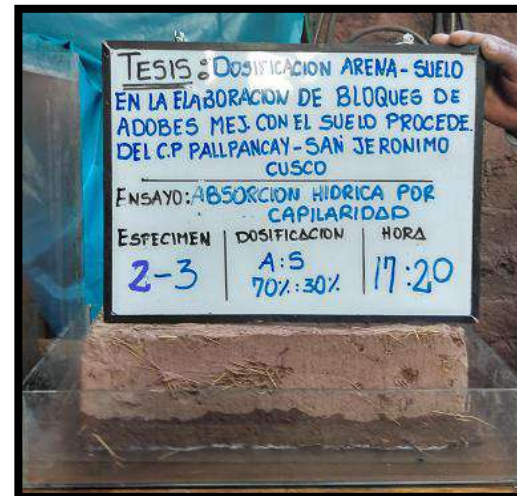 TESIS: DOSIFICACION ARENA-SUELO
EN LA ELABORACION DE BLOQUES DE
ADOBES MEJ. CON EL SUELO PROCEDE.
DEL C.P PALLPANCAY-SAN JERONIMO
CUSCO
ENSAYO: ABSORCION HIDRICA POR
CAPILARIDAD
ESPECIMEN DOSIFICACION HORA
2-3 A:S 70%:30% 17:20